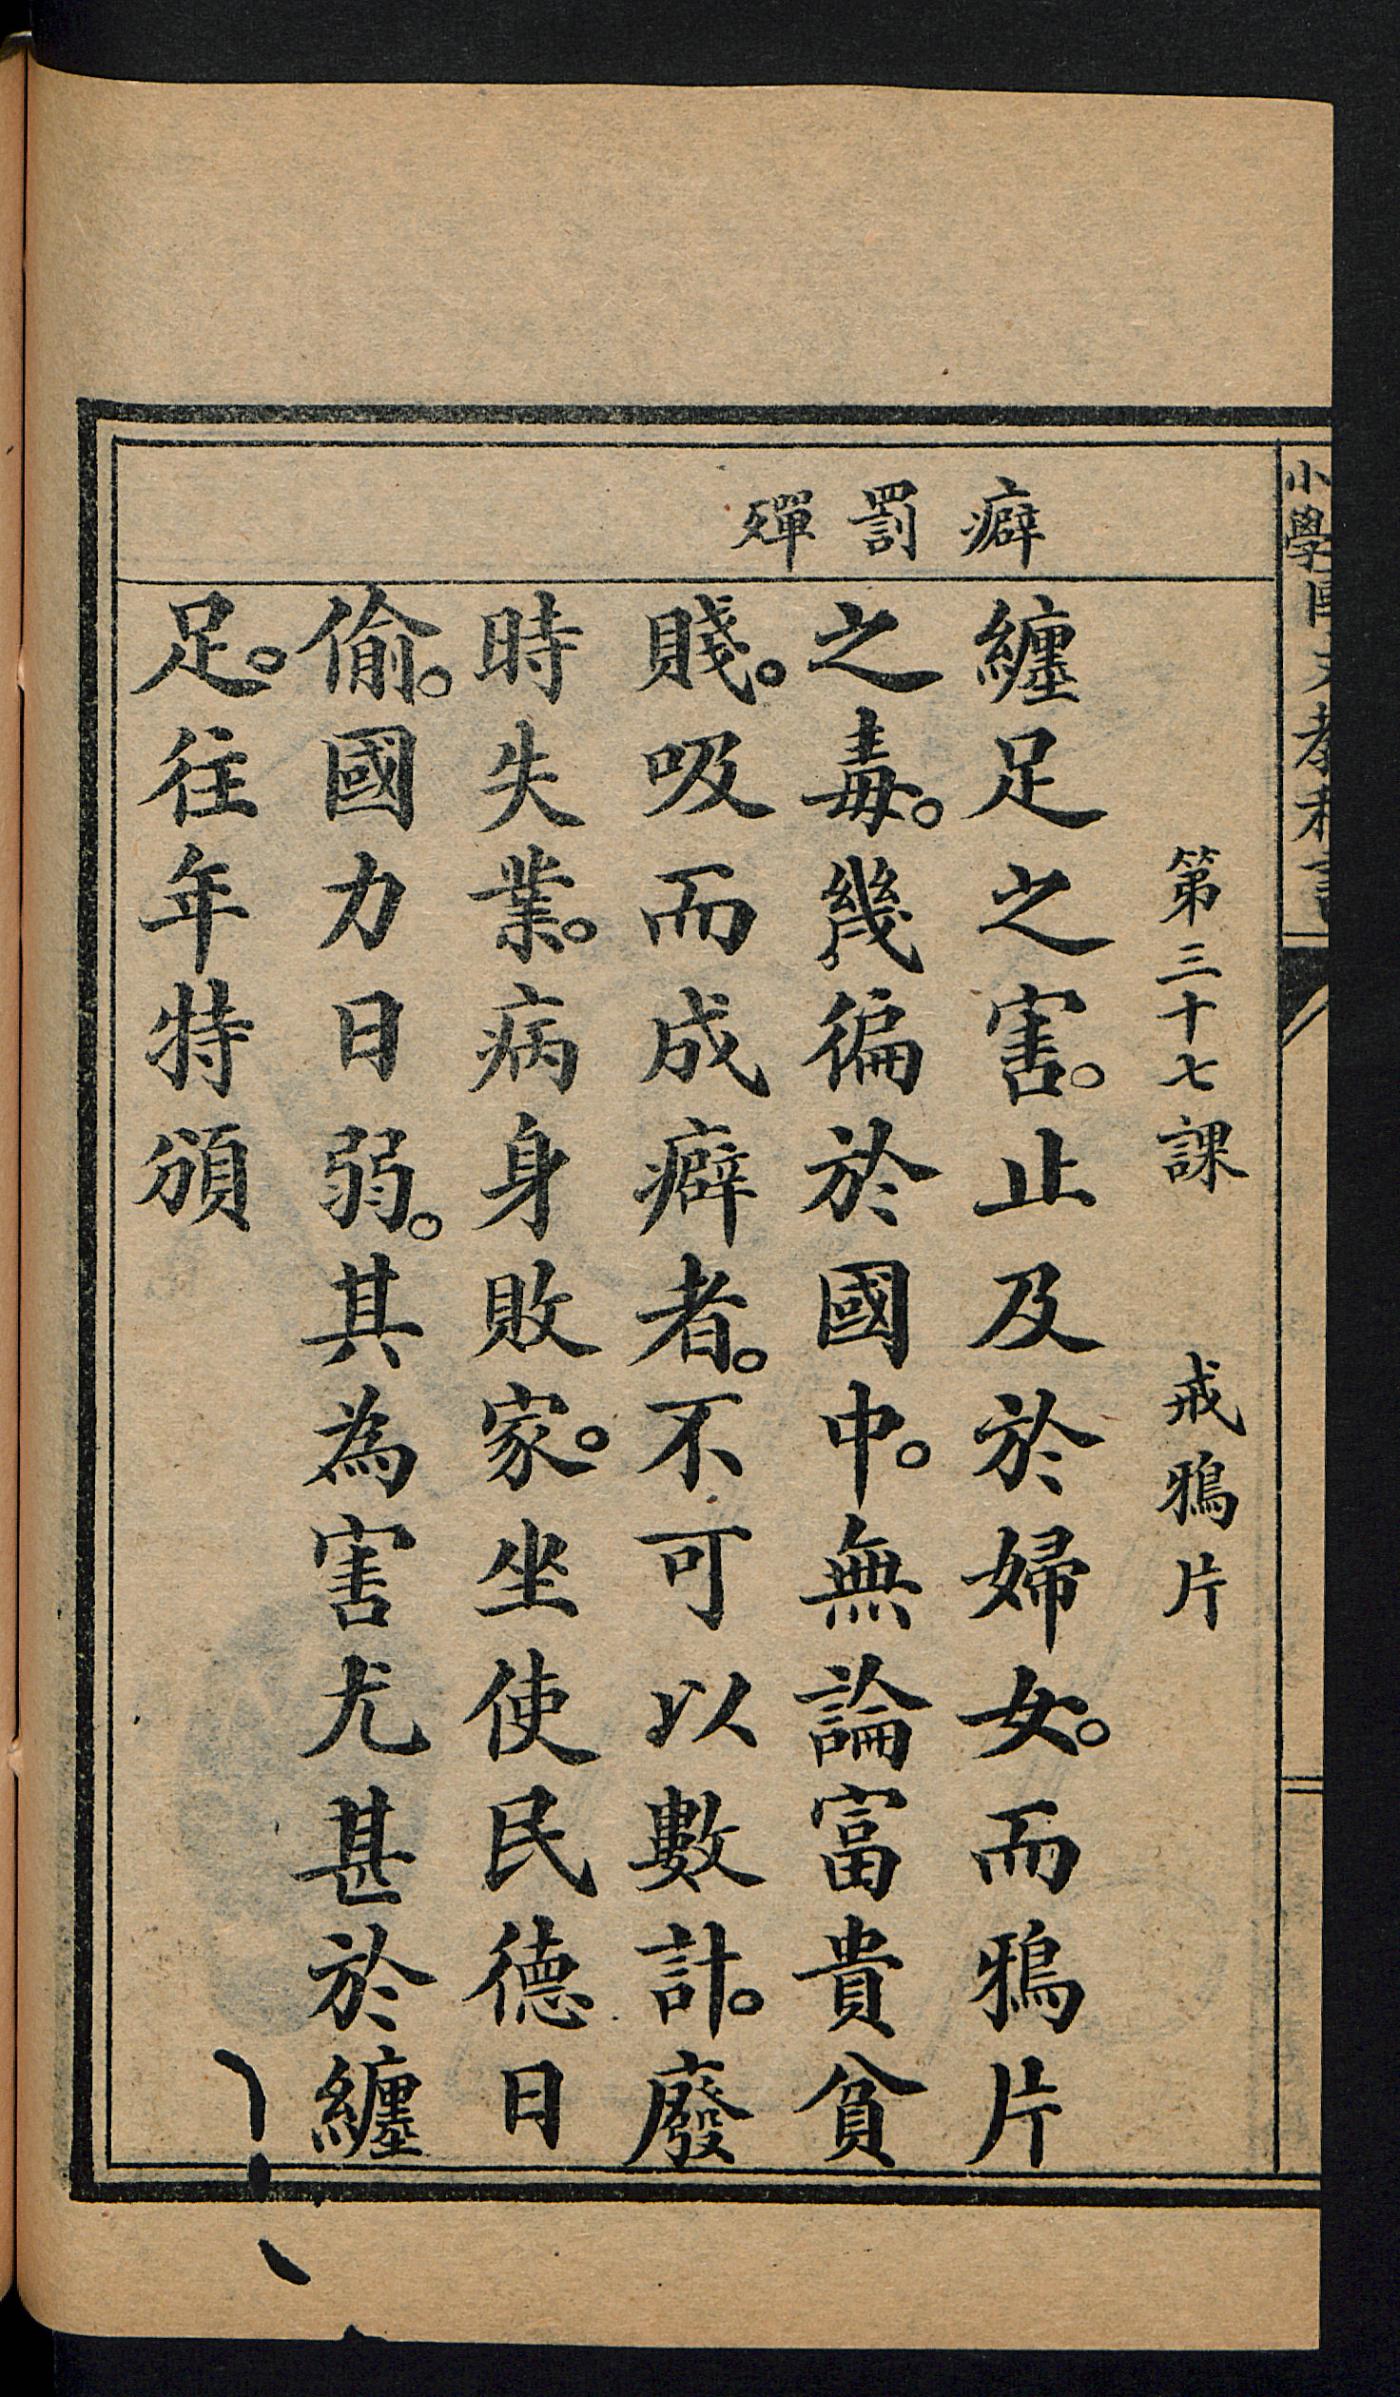 小學國文教科書
第三十七課　戒鴉片
癖 罰 殫
纏足之害。止及於婦女。而鴉片
之毒。幾徧於國中。無論富貴貧
賤。吸而成癖者。不可以數計。廢
時失業。病身敗家。坐使民德日
偷。國力日弱。其為害尤甚於纏
足。往年特頒